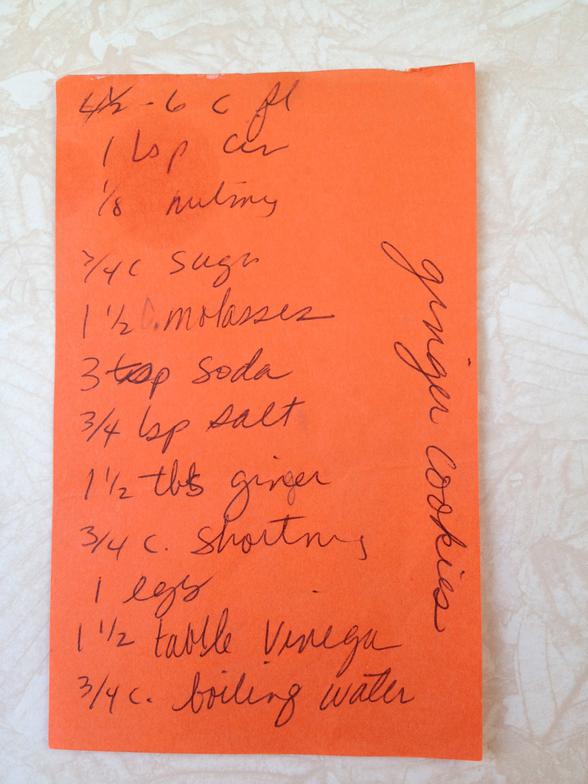 4½ - 6 c fl
1 tsp cin
1/8 nutmeg
3/4 c sugar
1 1/2 c. molasses
3 tsp soda
3/4 tsp salt
1 1/2 tbs ginger
3/4 c. shortning
1 egg
1 1/2 table vinegar
3/4 c. boiling water
ginger cookies